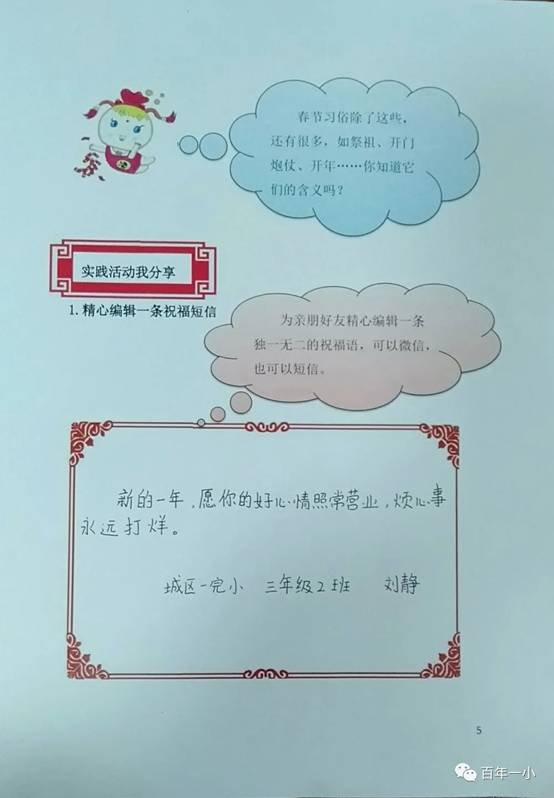 春节习俗除了这些，
还有很多，如祭祖、开门
炮仗、开年……你知道它
们的含义吗？
实践活动我分享
1.精心编辑一条祝福短信
为亲朋好友精心编辑一条
独一无二的祝福语，可以微信，
也可以短信。
新的一年，愿你的好心情照常营业，烦心事
永远打烊。
城区一完小 三年级2班 刘静
5
百年一小